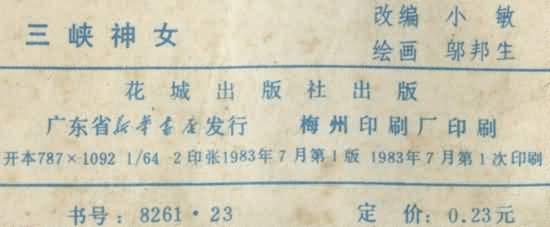 三峡神女
改编 小敏
绘画 邬邦生
花城出版社出版
广东省新华书店发行 梅州印刷厂印刷
开本787×1092 1/64 2印张1983年7月第1版 1983年7月第1次印刷
书号：8261·23 定价：0.23元